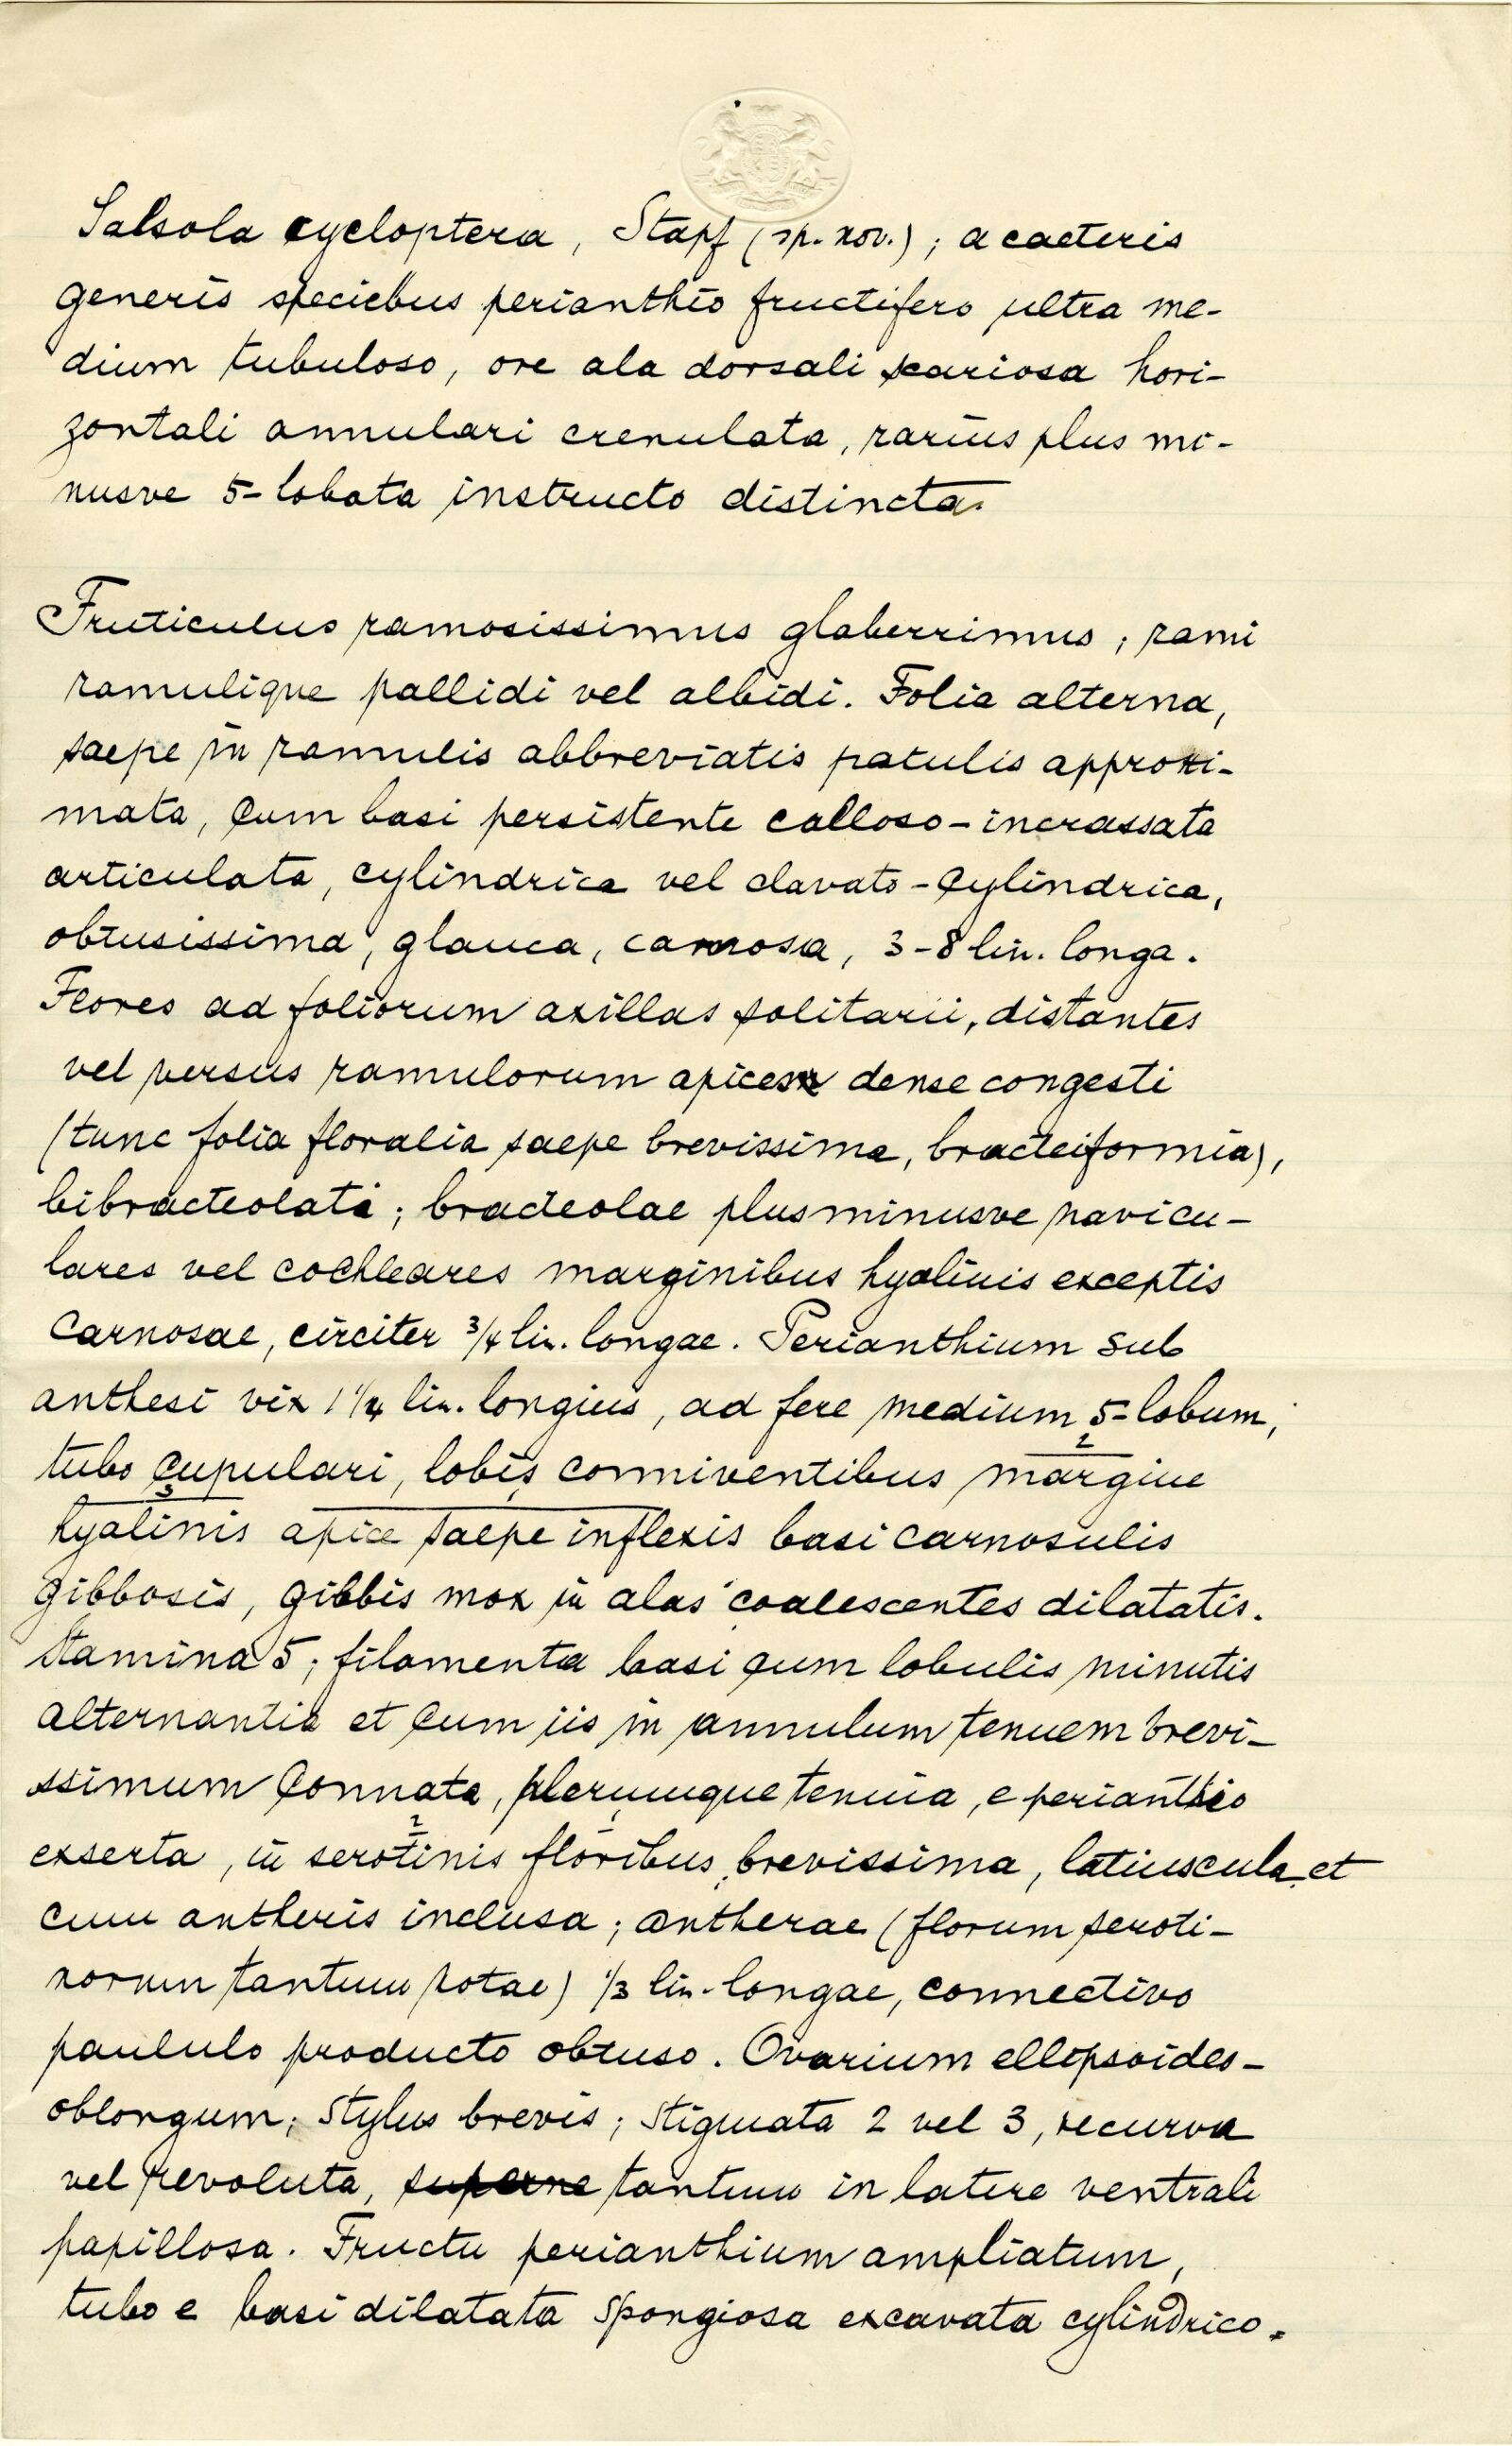 Salsola cycloptera, Stapf (sp. nov.); a caeteris
generis speciebus perianthio fructifero ultra me-
dium tubuloso, ore ala dorsali scariosa hori-
zontali annulari crenulata, rarius plus mi-
nusve 5-lobata instructo distincta.
Fruticulus ramosissimus glaberrimus; rami
ramulique pallidi vel albidi. Folia alterna,
saepe in ramulis abbreviatis patulis approxi-
mata, cum basi persistente calloso-incrassata
articulata, cylindrica vel clavato-cylindrica,
obtusissima, glauca, carnosa, 3-8 lin. longa.
Flores ad foliorum axillas solitarii, distantes
vel versus ramulorum apices dense congesti
(tunc folia floralia saepe brevissima, bracteiformia),
bibracteolati; bracteolae plus minusve navicu-
lares vel cochleares marginibus hyalinis exceptis
carnosae, circiter 3/4 lin. longae. Perianthium sub
anthesi vix 1 1/4 lin. longius, ad fere medium 5-lobum,
tubo cupulari, lobis conniventibus margine
hyalinis apice saepe inflexis basi carnosulis
gibbosis, gibbis mox in alas coalescentes dilatatis.
Stamina 5; filamenta basi cum lobulis minutis
alternantia et cum iis in annulum tenuem brevi-
ssimum connata, plerumque tenuia, e perianthio
exserta, in serotinis floribus brevissima, latiuscula et
cum antheris inclusa; antherae (florum seroti-
norum tantum notae) 1/3 lin. longae, connectivo
paululo producto obtuso. Ovarium ellipsoideo-
oblongum; stylus brevis; stigmata 2 vel 3, recurva
vel revoluta, superne tantum in latere ventrali
papillosa. Fructu perianthium ampliatum,
tubo e basi dilatata spongiosa excavata cylindrico.